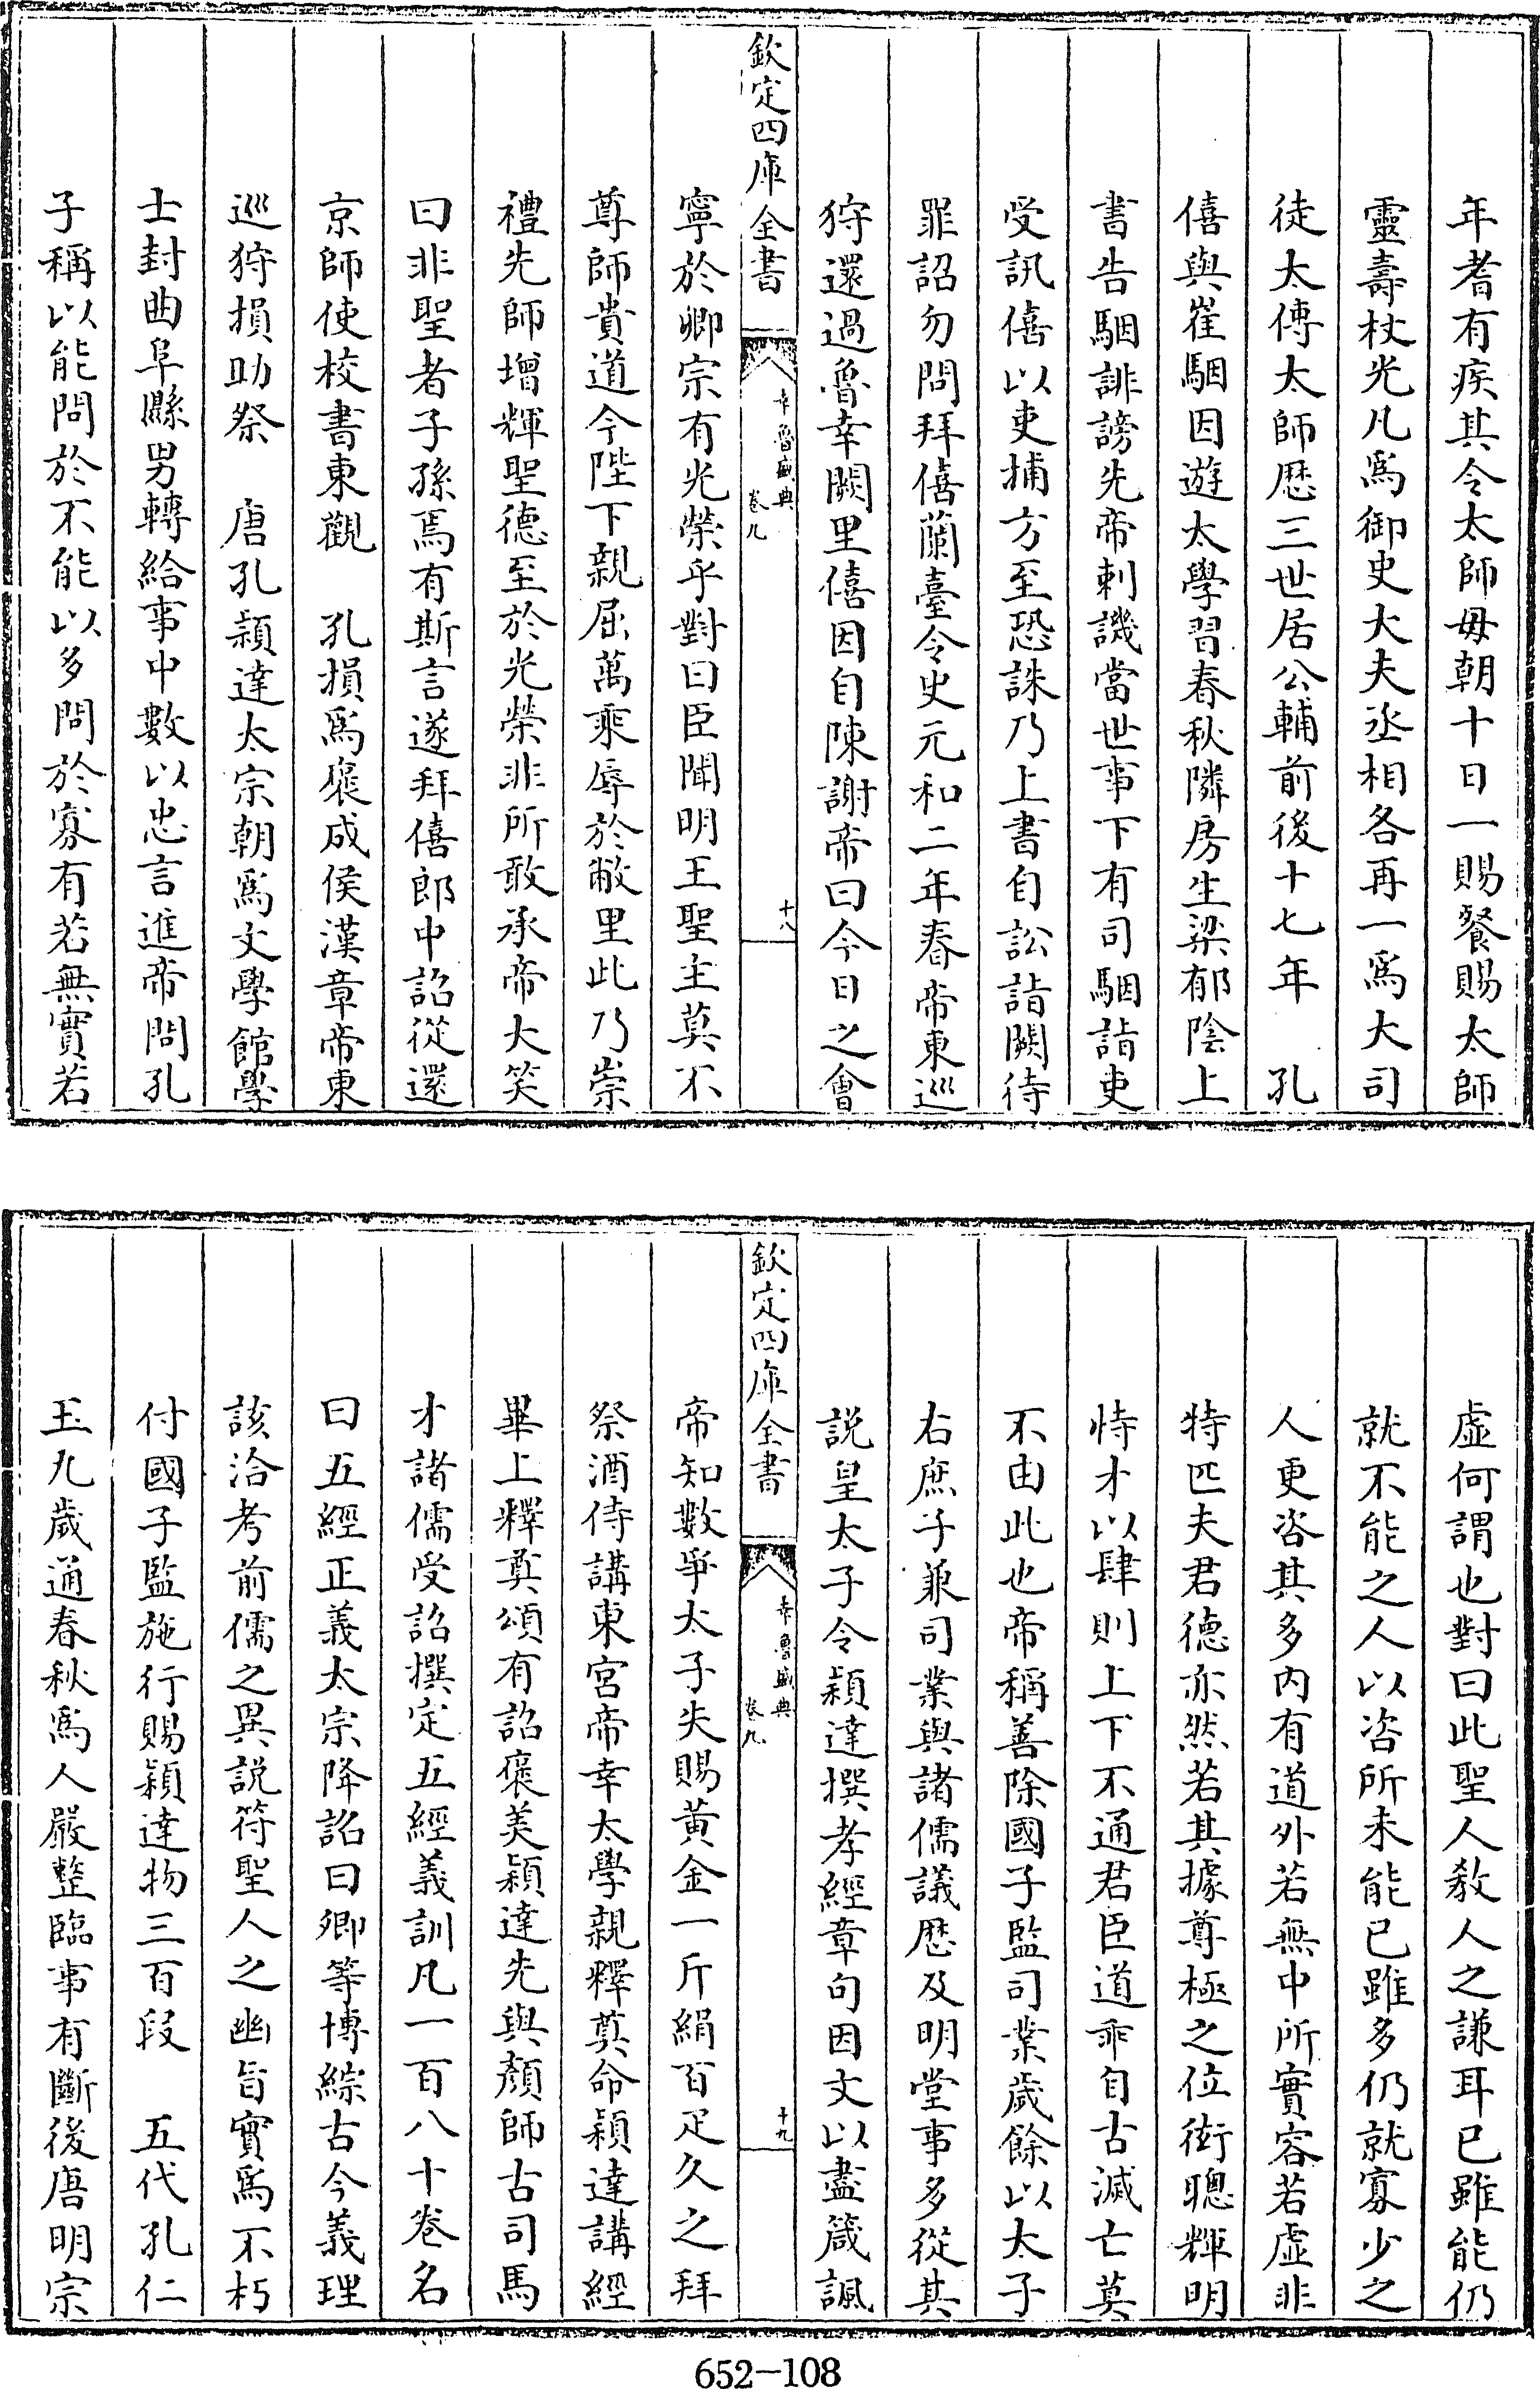 年耆有疾其令太師毋朝十日一賜餐賜太師
靈壽杖光凡為御史大夫丞相各再一為大司
徒太傅太師歴三世居公輔前後十七年　孔
僖與崔駰因遊太學習春秋隣房生梁郁陰上
書告駰誹謗先帝刺譏當世事下有司駰詣吏
受訊僖以吏捕方至恐誅乃上書自訟詣闕待
罪詔勿問拜僖蘭臺令史元和二年春帝東巡
狩還過魯幸闕里僖因自陳謝帝曰今日之會
欽定四庫全書
幸魯盛典
卷九
十八
寧於卿宗有光榮乎對曰臣聞明王聖主莫不
尊師貴道今陛下親屈萬乘辱於敝里此乃崇
禮先師增輝聖德至於光榮非所敢承帝大笑
曰非聖者子孫焉有斯言遂拜僖郎中詔從還
京師使校書東觀　孔損為褒成侯漢章帝東
巡狩損助祭　唐孔頴達太宗朝為文學館學
士封曲阜縣男轉給事中數以忠言進帝問孔
子稱以能問於不能以多問於寡有若無實若
虛何謂也對曰此聖人教人之謙耳已雖能仍
就不能之人以咨所未能已雖多仍就寡少之
人更咨其多内有道外若無中所實容若虛非
特匹夫君德亦然若其據尊極之位衒聰輝明
恃才以肆則上下不通君臣道乖自古滅亡莫
不由此也帝稱善除國子監司業歲餘以太子
右庶子兼司業與諸儒議歴及明堂事多從其
説皇太子令頴達撰孝經章句因文以盡箴諷
欽定四庫全書
幸魯盛典
卷九
十九
帝知數爭太子失賜黄金一斤絹百疋久之拜
祭酒侍講東宮帝幸太學親釋奠命頴達講經
畢上釋奠頌有詔褒美頴達先與顔師古司馬
才諸儒受詔撰定五經義訓凡一百八十卷名
曰五經正義太宗降詔曰卿等博綜古今義理
該洽考前儒之異説符聖人之幽旨實為不朽
付國子監施行賜頴達物三百段　五代孔仁
玉九歲通春秋為人嚴整臨事有斷後唐明宗
652-108